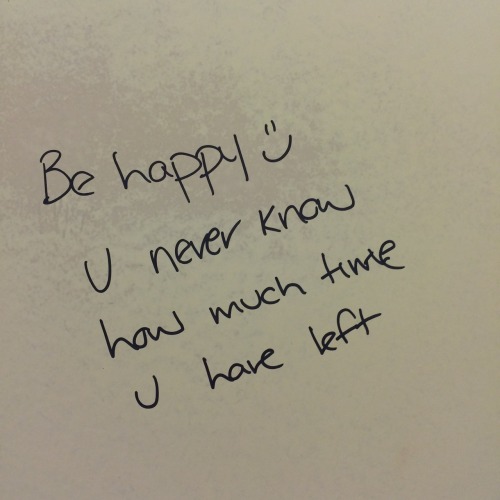 Be happy ü
U never know
how much time
U have left